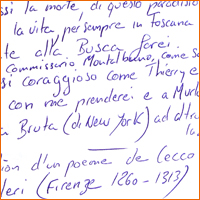 ssi la morte, di questo paradiso
la vita, per sempre in Toscana
te alla Busca Perei.
Commissario Montalbano, come se
si coraggioso come Thierry e
con me prenderei e a Murl
a Bruta (di New York) ad altr
la.
ion d'un poeme de Cecco
leri (Firenze 1260-1313)